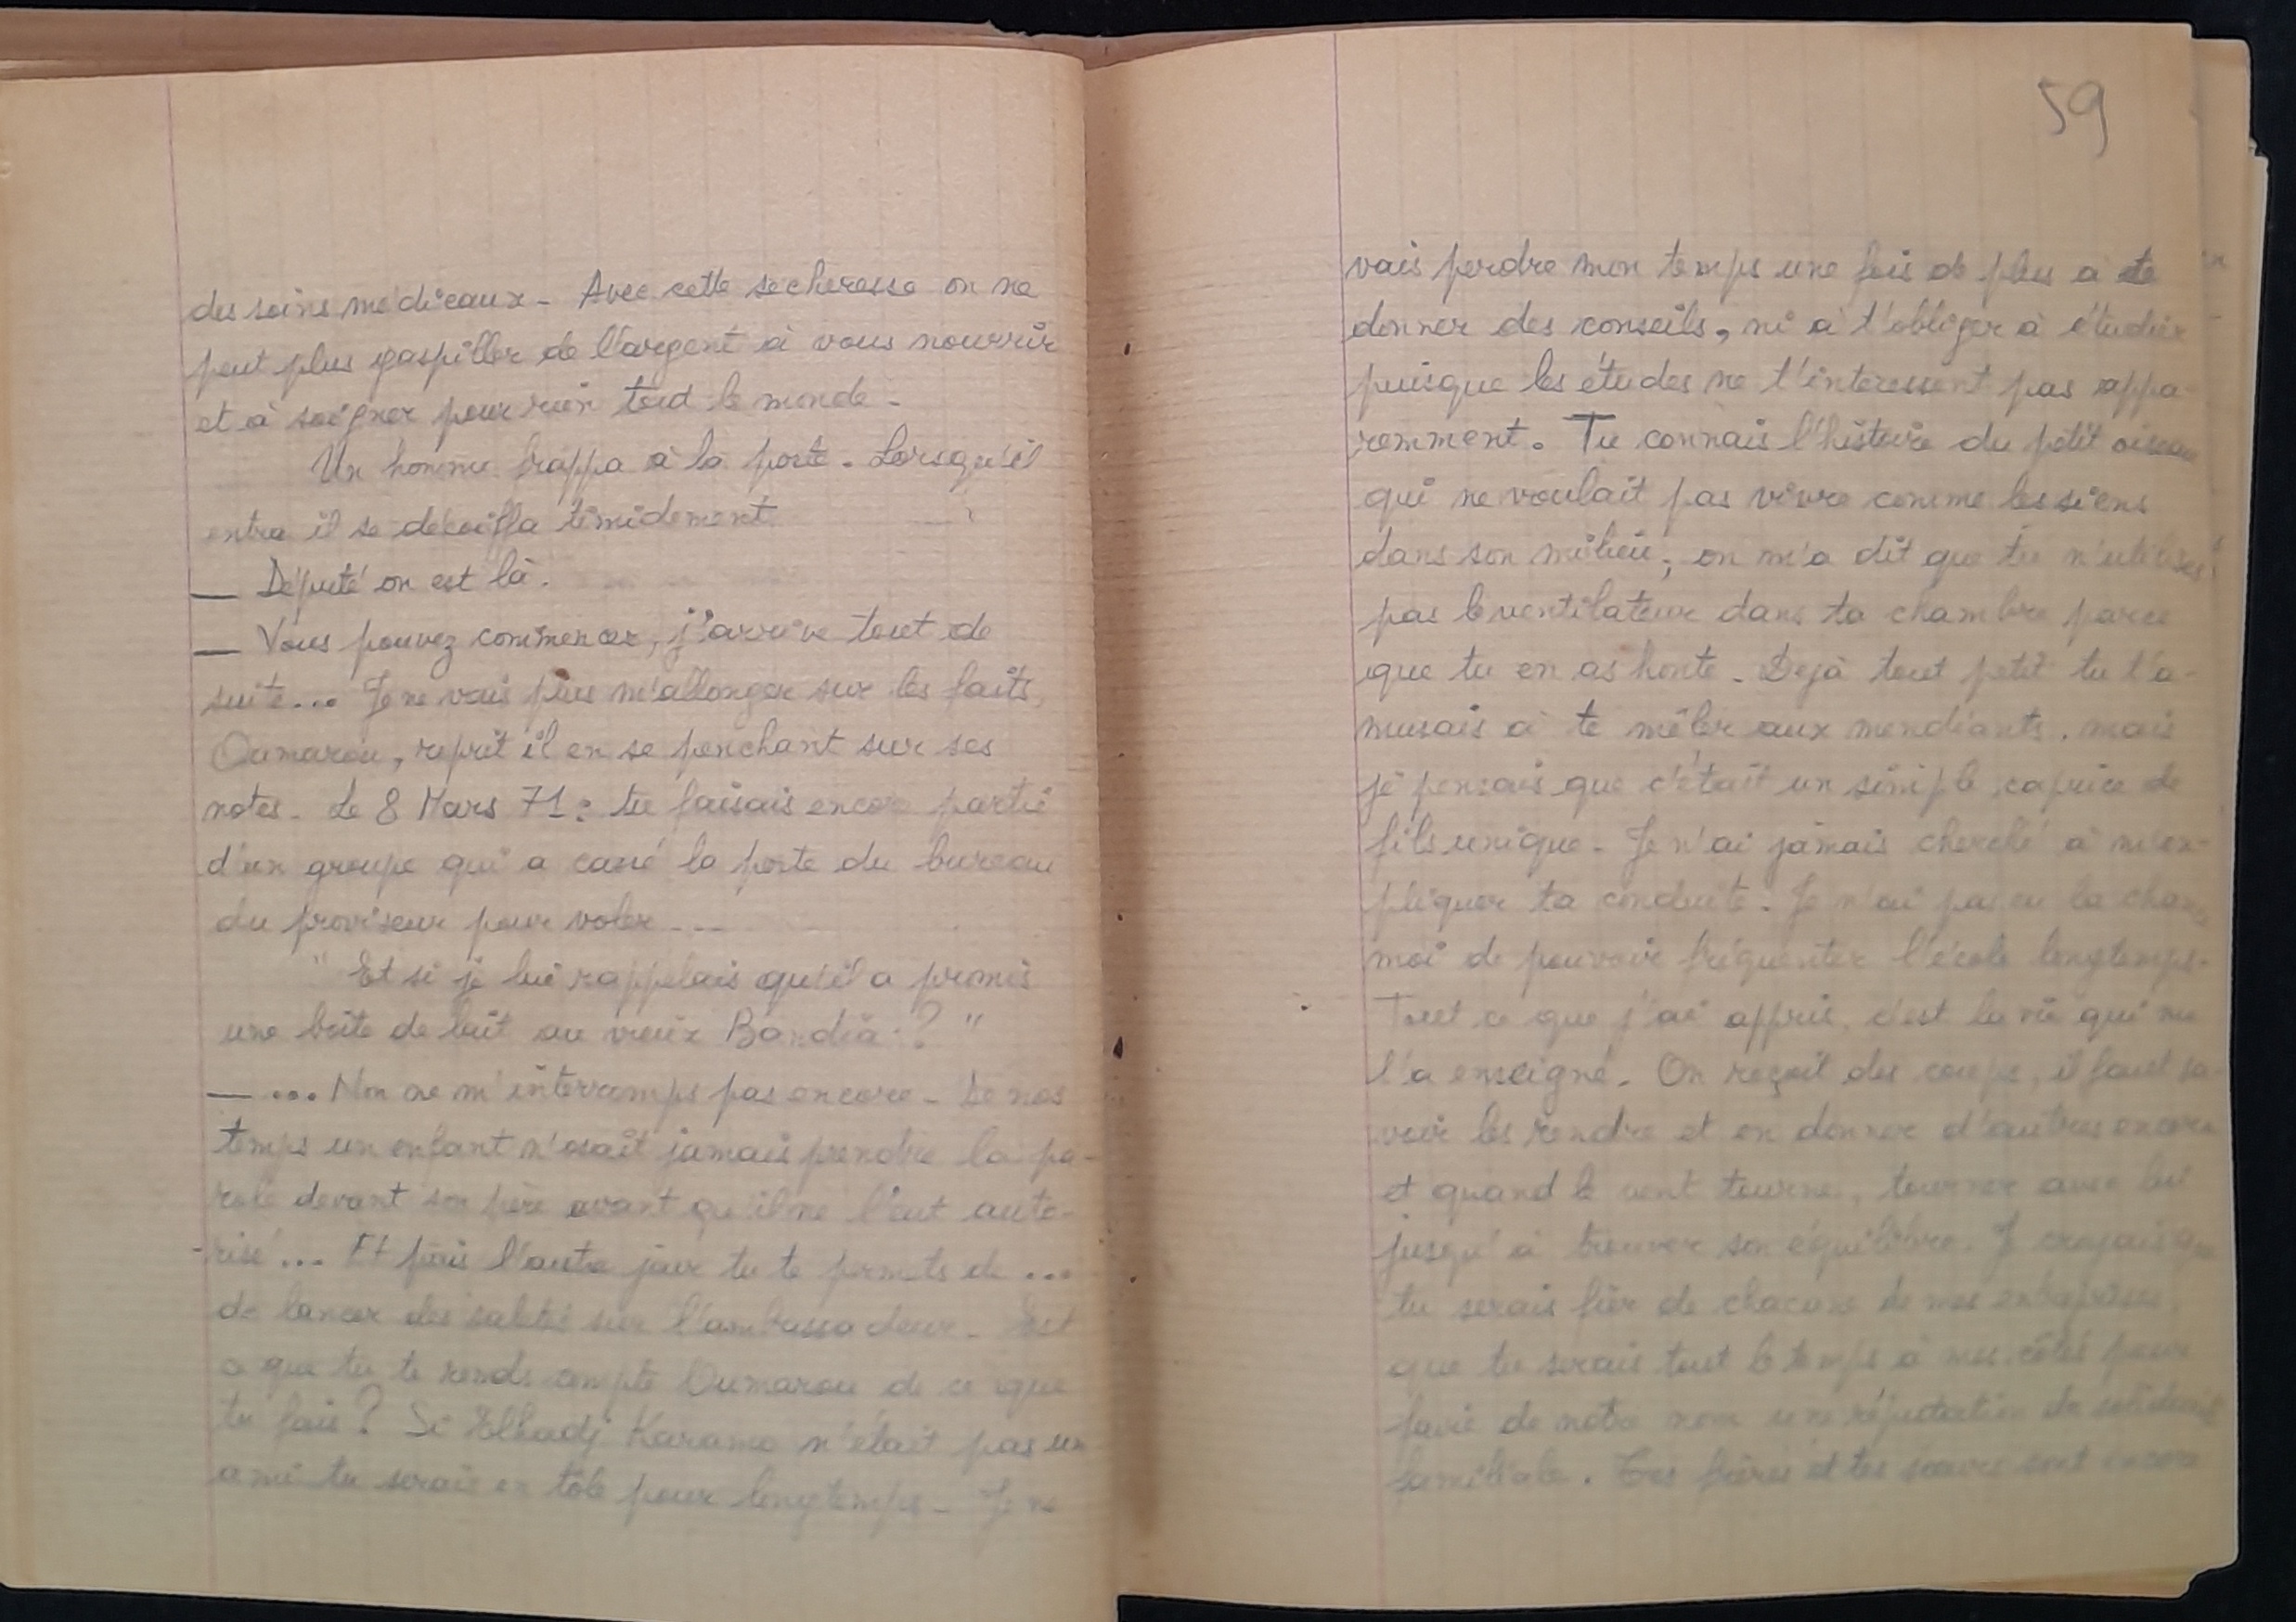 des soins médicaux - Avec cette secheresse on ne
peut plus gaspiller de l'argent à vous nourrir
et à soigner pour rien tout le monde -
Un homme frappa à la porte. Lorsqu'il
entra il se decoiffa timidement
— Député on est là.
— Vous pouvez commencer, j'arrive tout de
suite... Je ne vais pas m'allonger sur les faits,
Oumarou, reprit il en se penchant sur ses
notes. Le 8 Mars 71 : tu faisais encore partie
d'un groupe qui a cassé la porte du bureau
du proviseur pour voler ...
" Et si je lui rappelais qu'il a promis
une boite de lait au vieux Bandia ? "
— ... Non ne m'interromps pas encore - De nos
temps un enfant n'osait jamais prendre la pa-
role devant son père avant qu'il ne l'eut auto-
-risé ... Et puis l'autre jour tu te permets de ...
de lancer des saletés sur l'ambassadeur - Est
ce que tu te rends compte Oumarou de ce que
tu fais ? Si Elhadj Karamo n'était pas un
ami tu serais en tôle pour longtemps - Je ne
59
vais perdre mon temps une fois de plus à te
donner des conseils, ni à t'obliger à étudier
puisque les études ne t'interessent pas appa
remment. Tu connais l'histoire du petit oiseau
qui ne voulait pas vivre comme les siens
dans son milieu; on m'a dit que tu n'utilises
pas le ventilateur dans ta chambre parce
que tu en as honte - Dejà tout petit tu t'a-
musais à te mêler aux mendiants, mais
je pensais que c'était un simple caprice de
fils unique - Je n'ai jamais cherché à m'ex-
pliquer ta conduite. Je n'ai pas eu la chance
moi de pouvoir fréquenter l'école longtemps -
Tout ce que j'ai appris, c'est la vie qui me
l'a enseigné. On reçoit des coups, il faut sa-
voir les rendre et en donner d'autres encore
et quand le vent tourne, tourner avec lui
jusqu'à trouver son équilibre. J croyais que
tu serais fier de chacune de mes entreprises,
que tu serais tout le temps à mes côtés pour
faire de notre nom une réputation de solidarité
familiale. Tes frères et tes soeurs sont encore